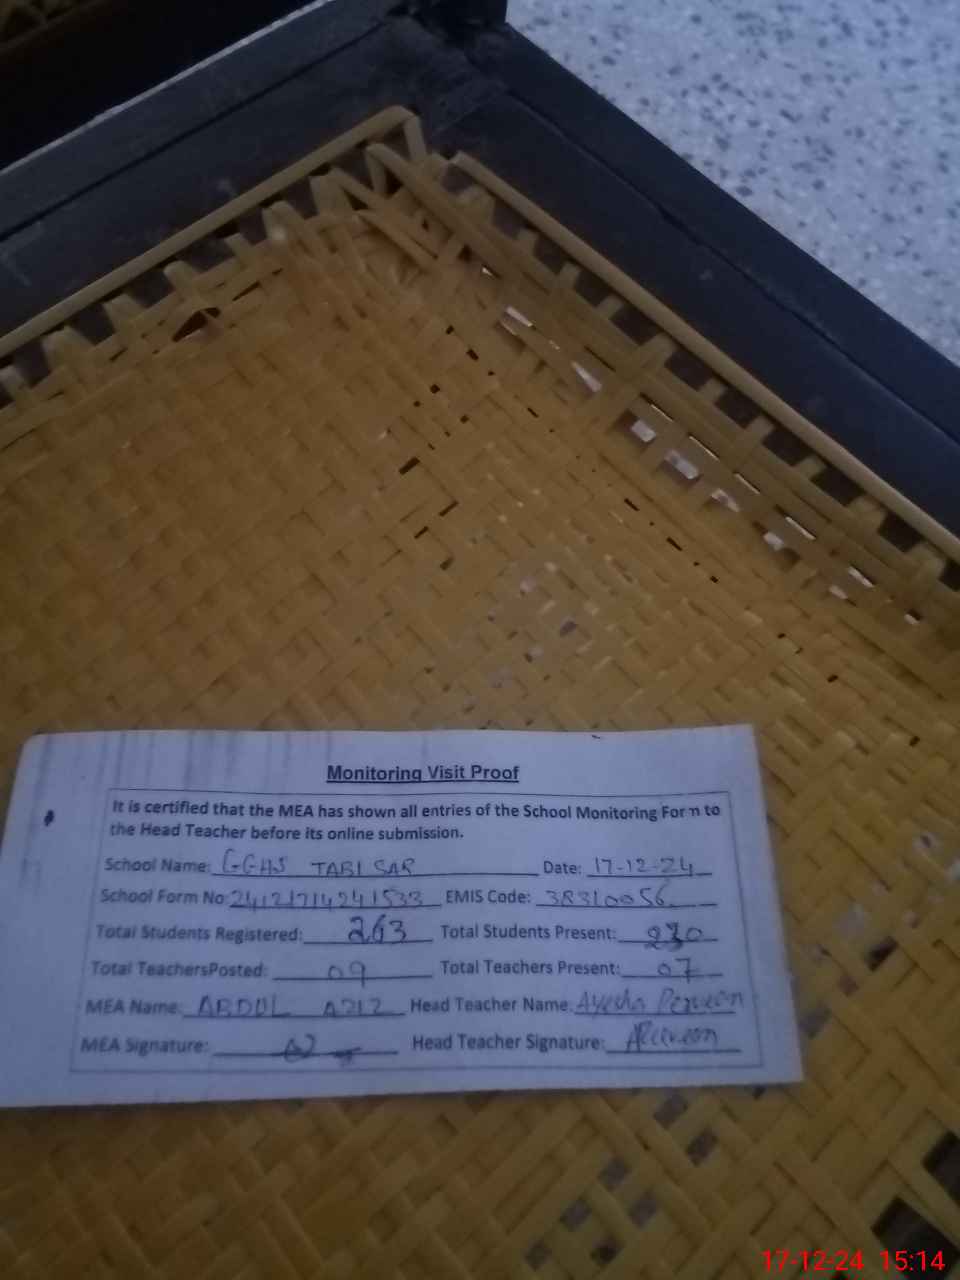 Monitoring Visit Proof
It is certified that the MEA has shown all entries of the School Monitoring Form to
the Head Teacher before its online submission.
School Name: GGHS TABI SAR Date: 17-12-24
School Form No: EMIS Code: 38310056
Total Students Registered: 263 Total Students Present: 230
Total TeachersPosted: 09 Total Teachers Present: 07
MEA Name: ABDUL AZIZ Head Teacher Name: Ayesha Perveen
MEA Signature: Head Teacher Signature:
17-12-24 15:14